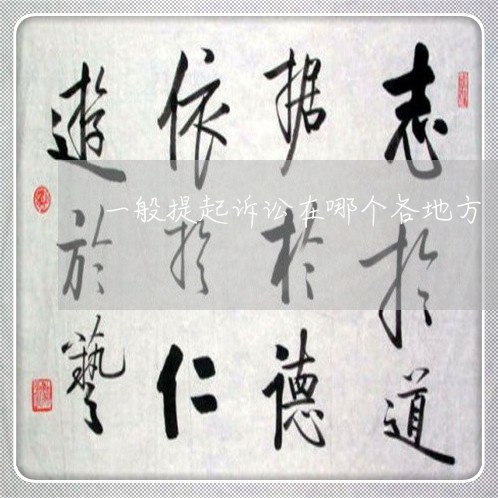 志於道
据於德
依於仁
遊於藝
一般提起诉讼在哪个各地方